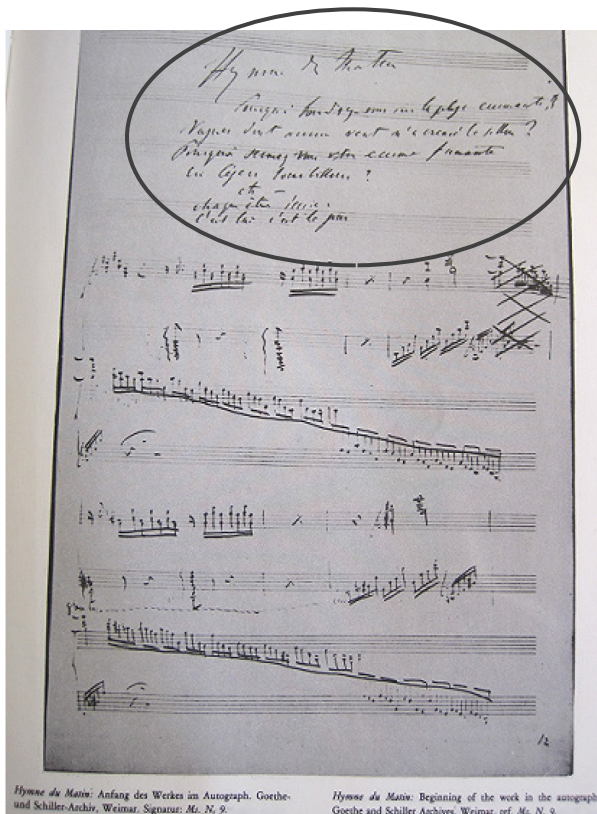 Hymne du Matin
Pourquoi bondissez-vous sur la plage écumante,
Vagues dont aucun vent n'a creusé le sillon ?
Pourquoi vous votre écume fumante
En légers tourbillons ?
etc –
chaque être s'écrie:
C'est lui c'est le jour
12
Hymne du Matin: Anfang des Werkes im Autograph. Goethe-
und Schiller-Archiv, Weimar. Signatur: Ms. N, 9.
Hymne du Matin: Beginning of the work in the autograph
Goethe and Schiller Archives, Weimar, ref. Ms. N, 9.